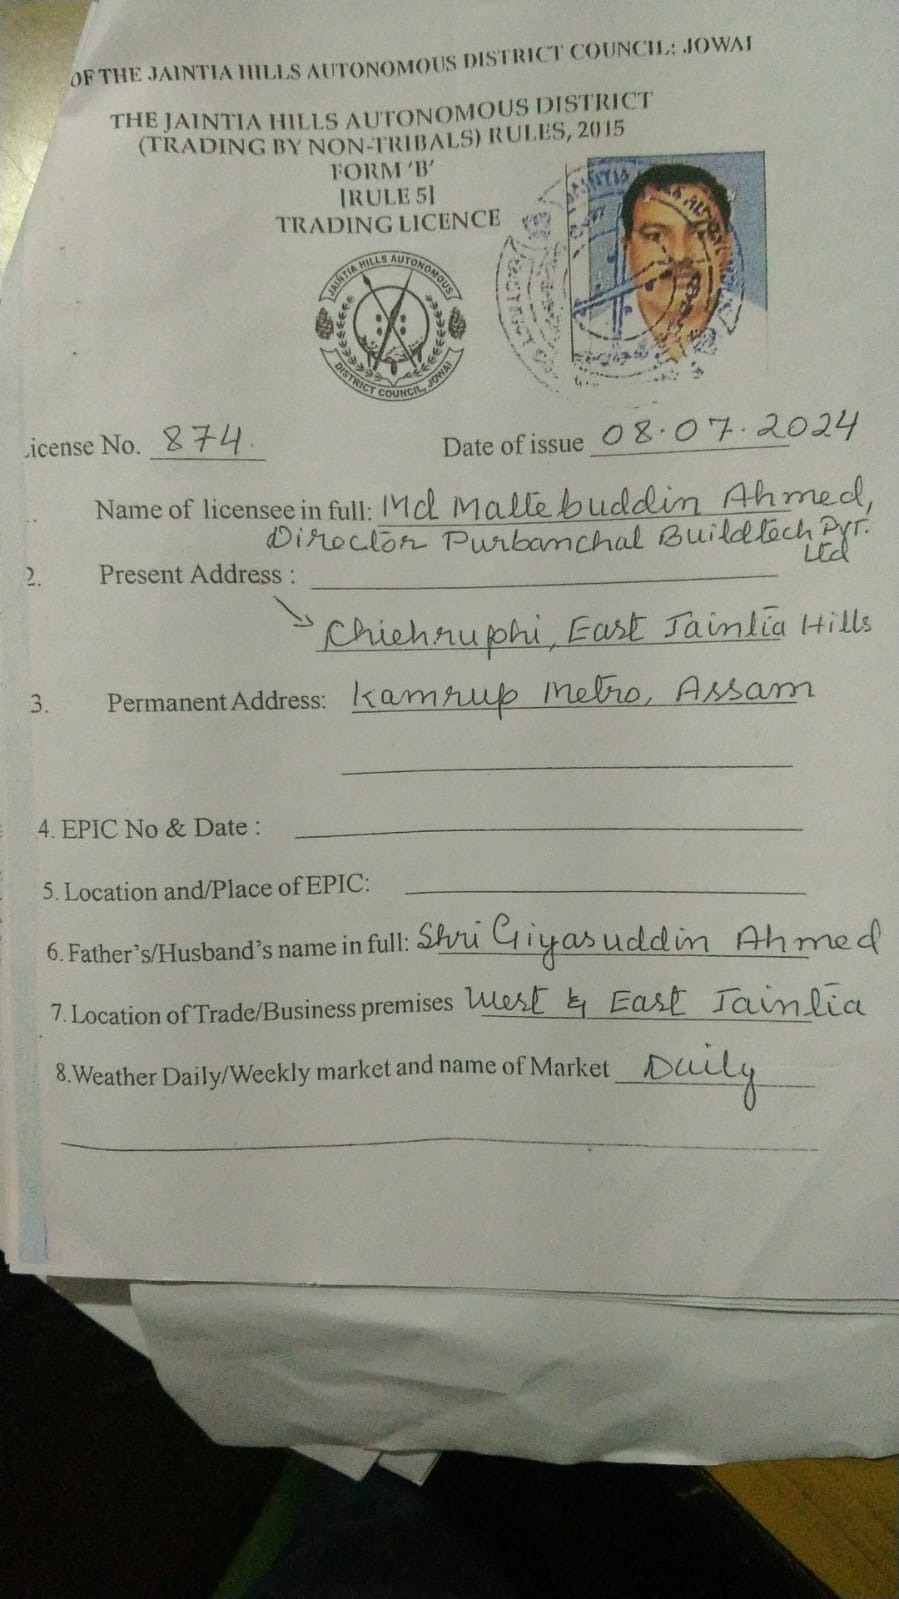 OF THE JAINTIA HILLS AUTONOMOUS DISTRICT COUNCIL: JOWAI
THE JAINTIA HILLS AUTONOMOUS DISTRICT
(TRADING BY NON-TRIBALS) RULES, 2015
FORM 'B'
[RULE 5]
TRADING LICENCE
JAINTIA HILLS AUTONOMOUS
DISTRICT COUNCIL, JOWAI
icense No. 874. Date of issue 08.07.2024
Name of licensee in full: Md Maltebuddin Ahmed,
Director Purbanchal Buildtech Pvt.
Ltd
2. Present Address :
Chiehruphi, East Jaintia Hills
3. Permanent Address: Kamrup Metro, Assam
4. EPIC No & Date :
5. Location and/Place of EPIC:
6. Father's/Husband's name in full: Shri Giyasuddin Ahmed
7. Location of Trade/Business premises West & East Jaintia
8.Weather Daily/Weekly market and name of Market Daily